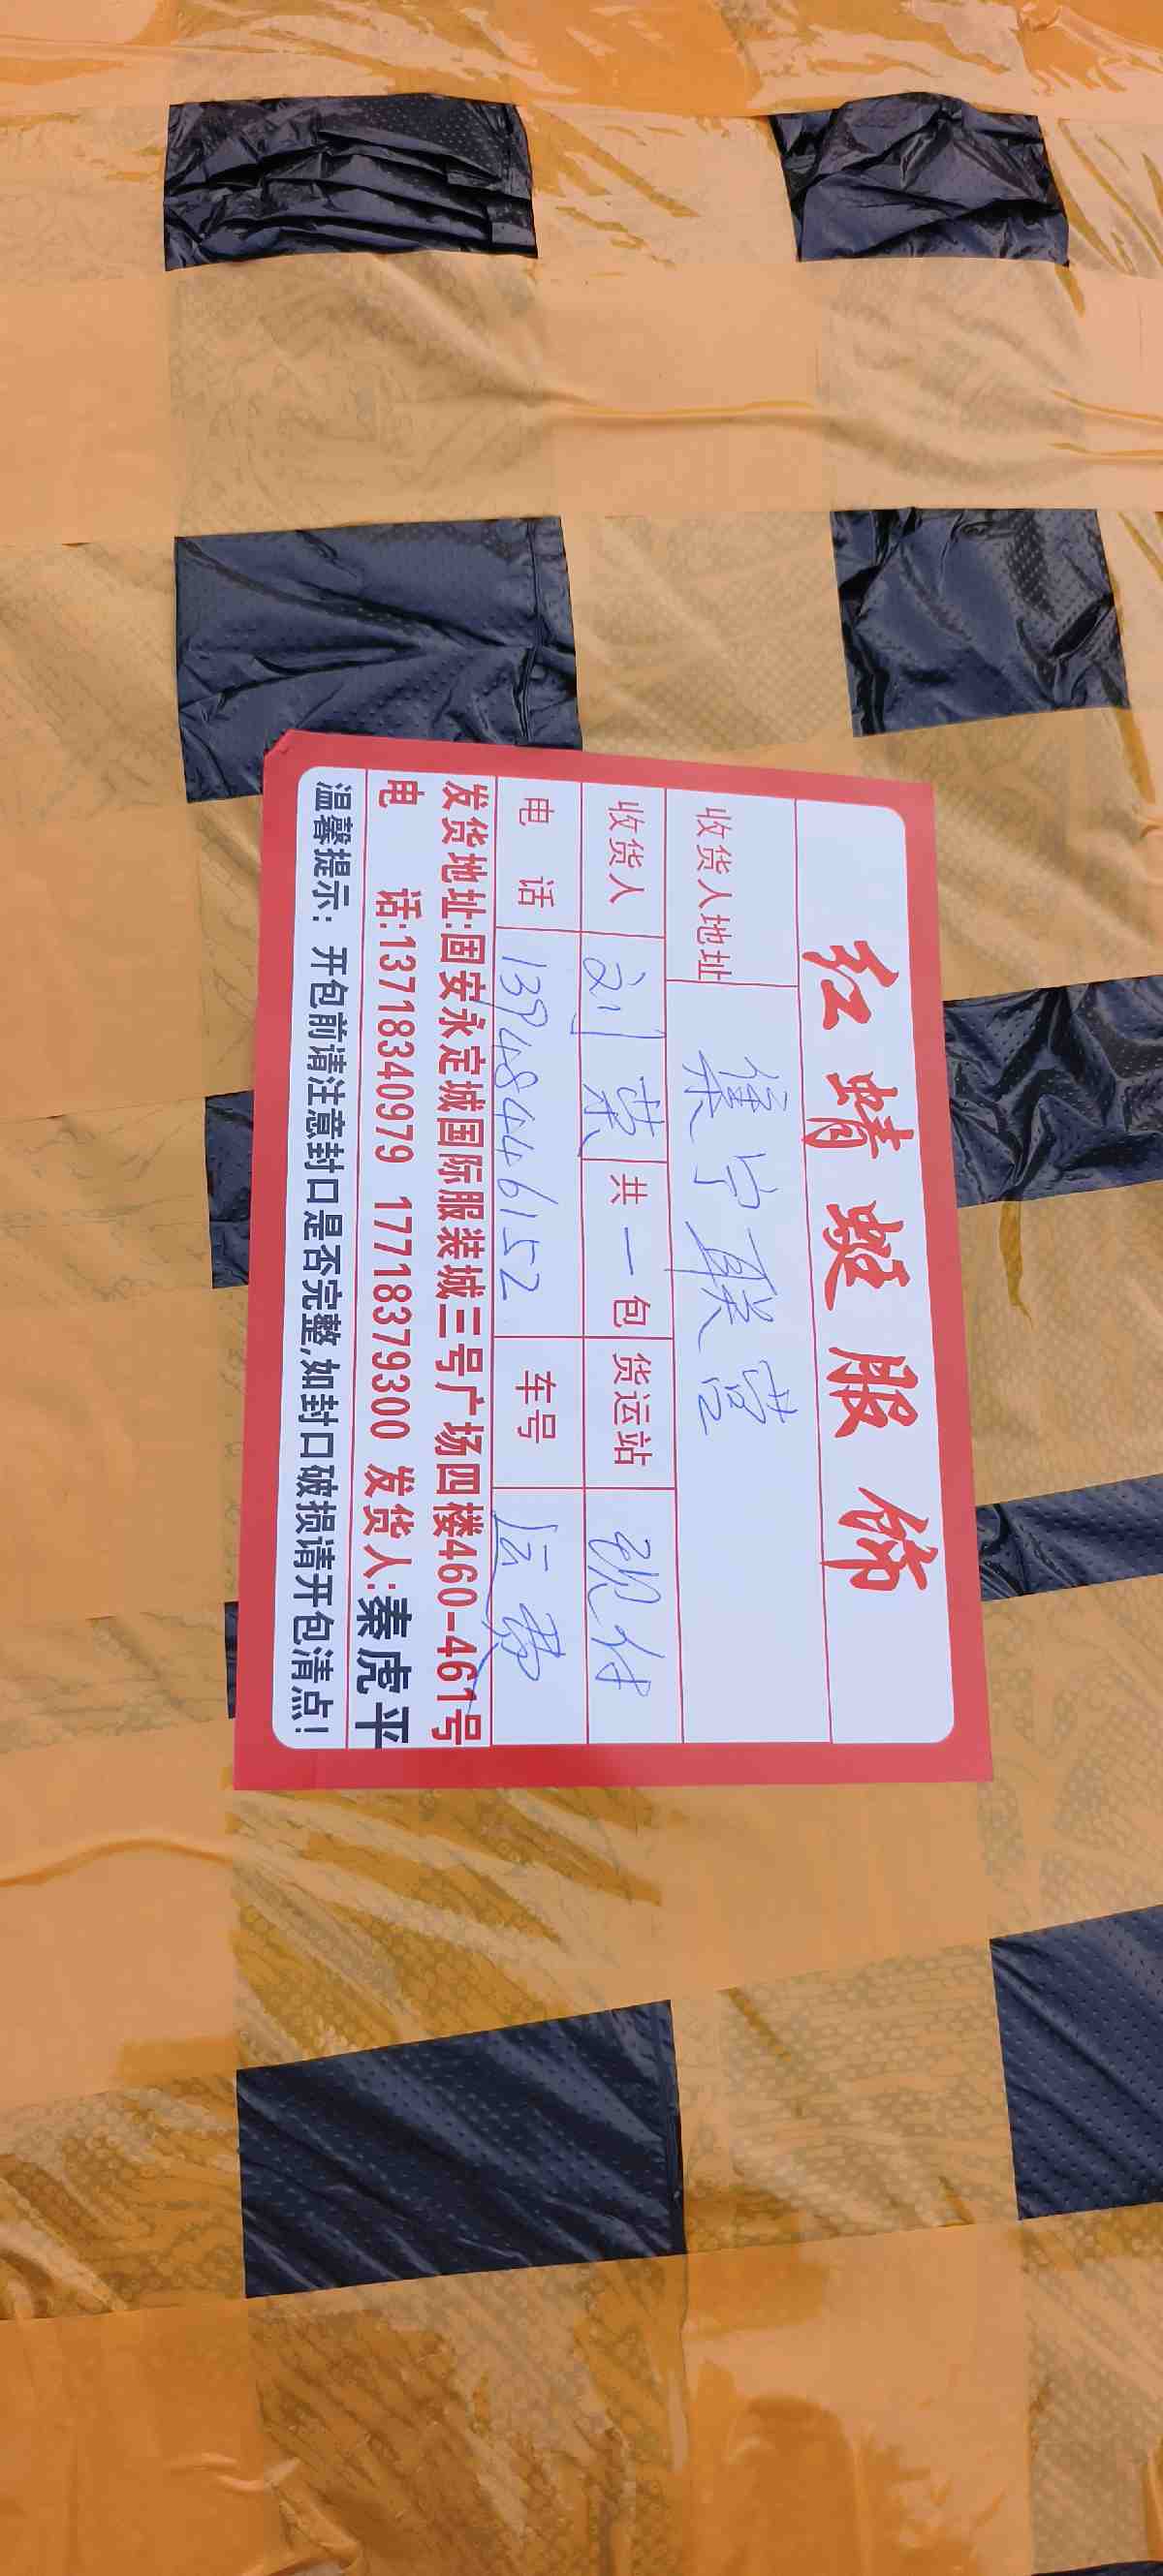 红蜻蜓服饰
收货人地址 集宁联营
收货人 刘荣 共一包 货运站 现付
电话 13948446152 车号 运费
发货地址:固安永定城国际服装城三号广场四楼460-461号
电话:13718340979 17718379300 发货人:秦虎平
温馨提示:开包前请注意封口是否完整,如封口破损请开包清点!